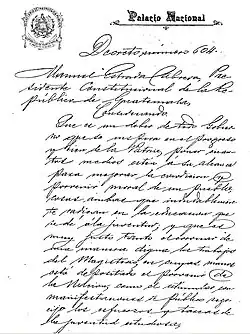 Palacio Nacional
Decreto número 604.
Manuel Estrada Cabrera, Pre-
sidente Constitucional de la Re-
pública de Guatemala,
Considerando:
Que es un deber de todo Gobier-
no que se inspira en el progreso
y bien de la Patria, poner cuan-
tos medios estén a su alcance
para mejorar la condición y
porvenir moral de un pueblo,
cosas ambas que indudablemen-
te radican en la educación que
se dé a la juventud, y que es
muy justo
de una manera digna, los traba-
jos del Magisterio, en cuyas manos
está depositado el porvenir de
la Nación; como de estimular con
manifestaciones de público rego-
cijo los esfuerzos y tareas de
la juventud estudiosa;